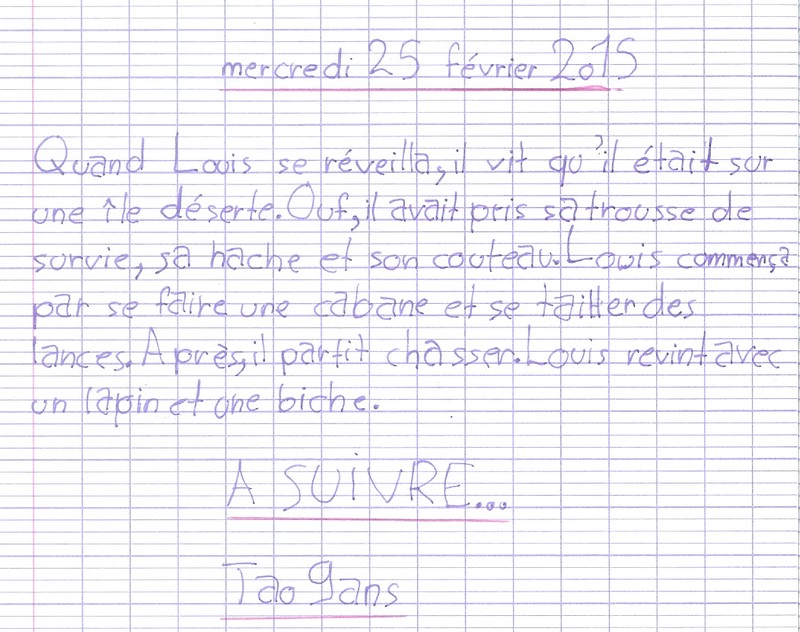 mercredi 25 février 2015
Quand Louis se réveilla, il vit qu'il était sur
une île déserte. Ouf, il avait pris sa trousse de
survie, sa hache et son couteau. Louis commença
par se faire une cabane et se tailler des
lances. Après, il partit chasser. Louis revint avec
un lapin et une biche.
A SUIVRE...
Tao 9ans